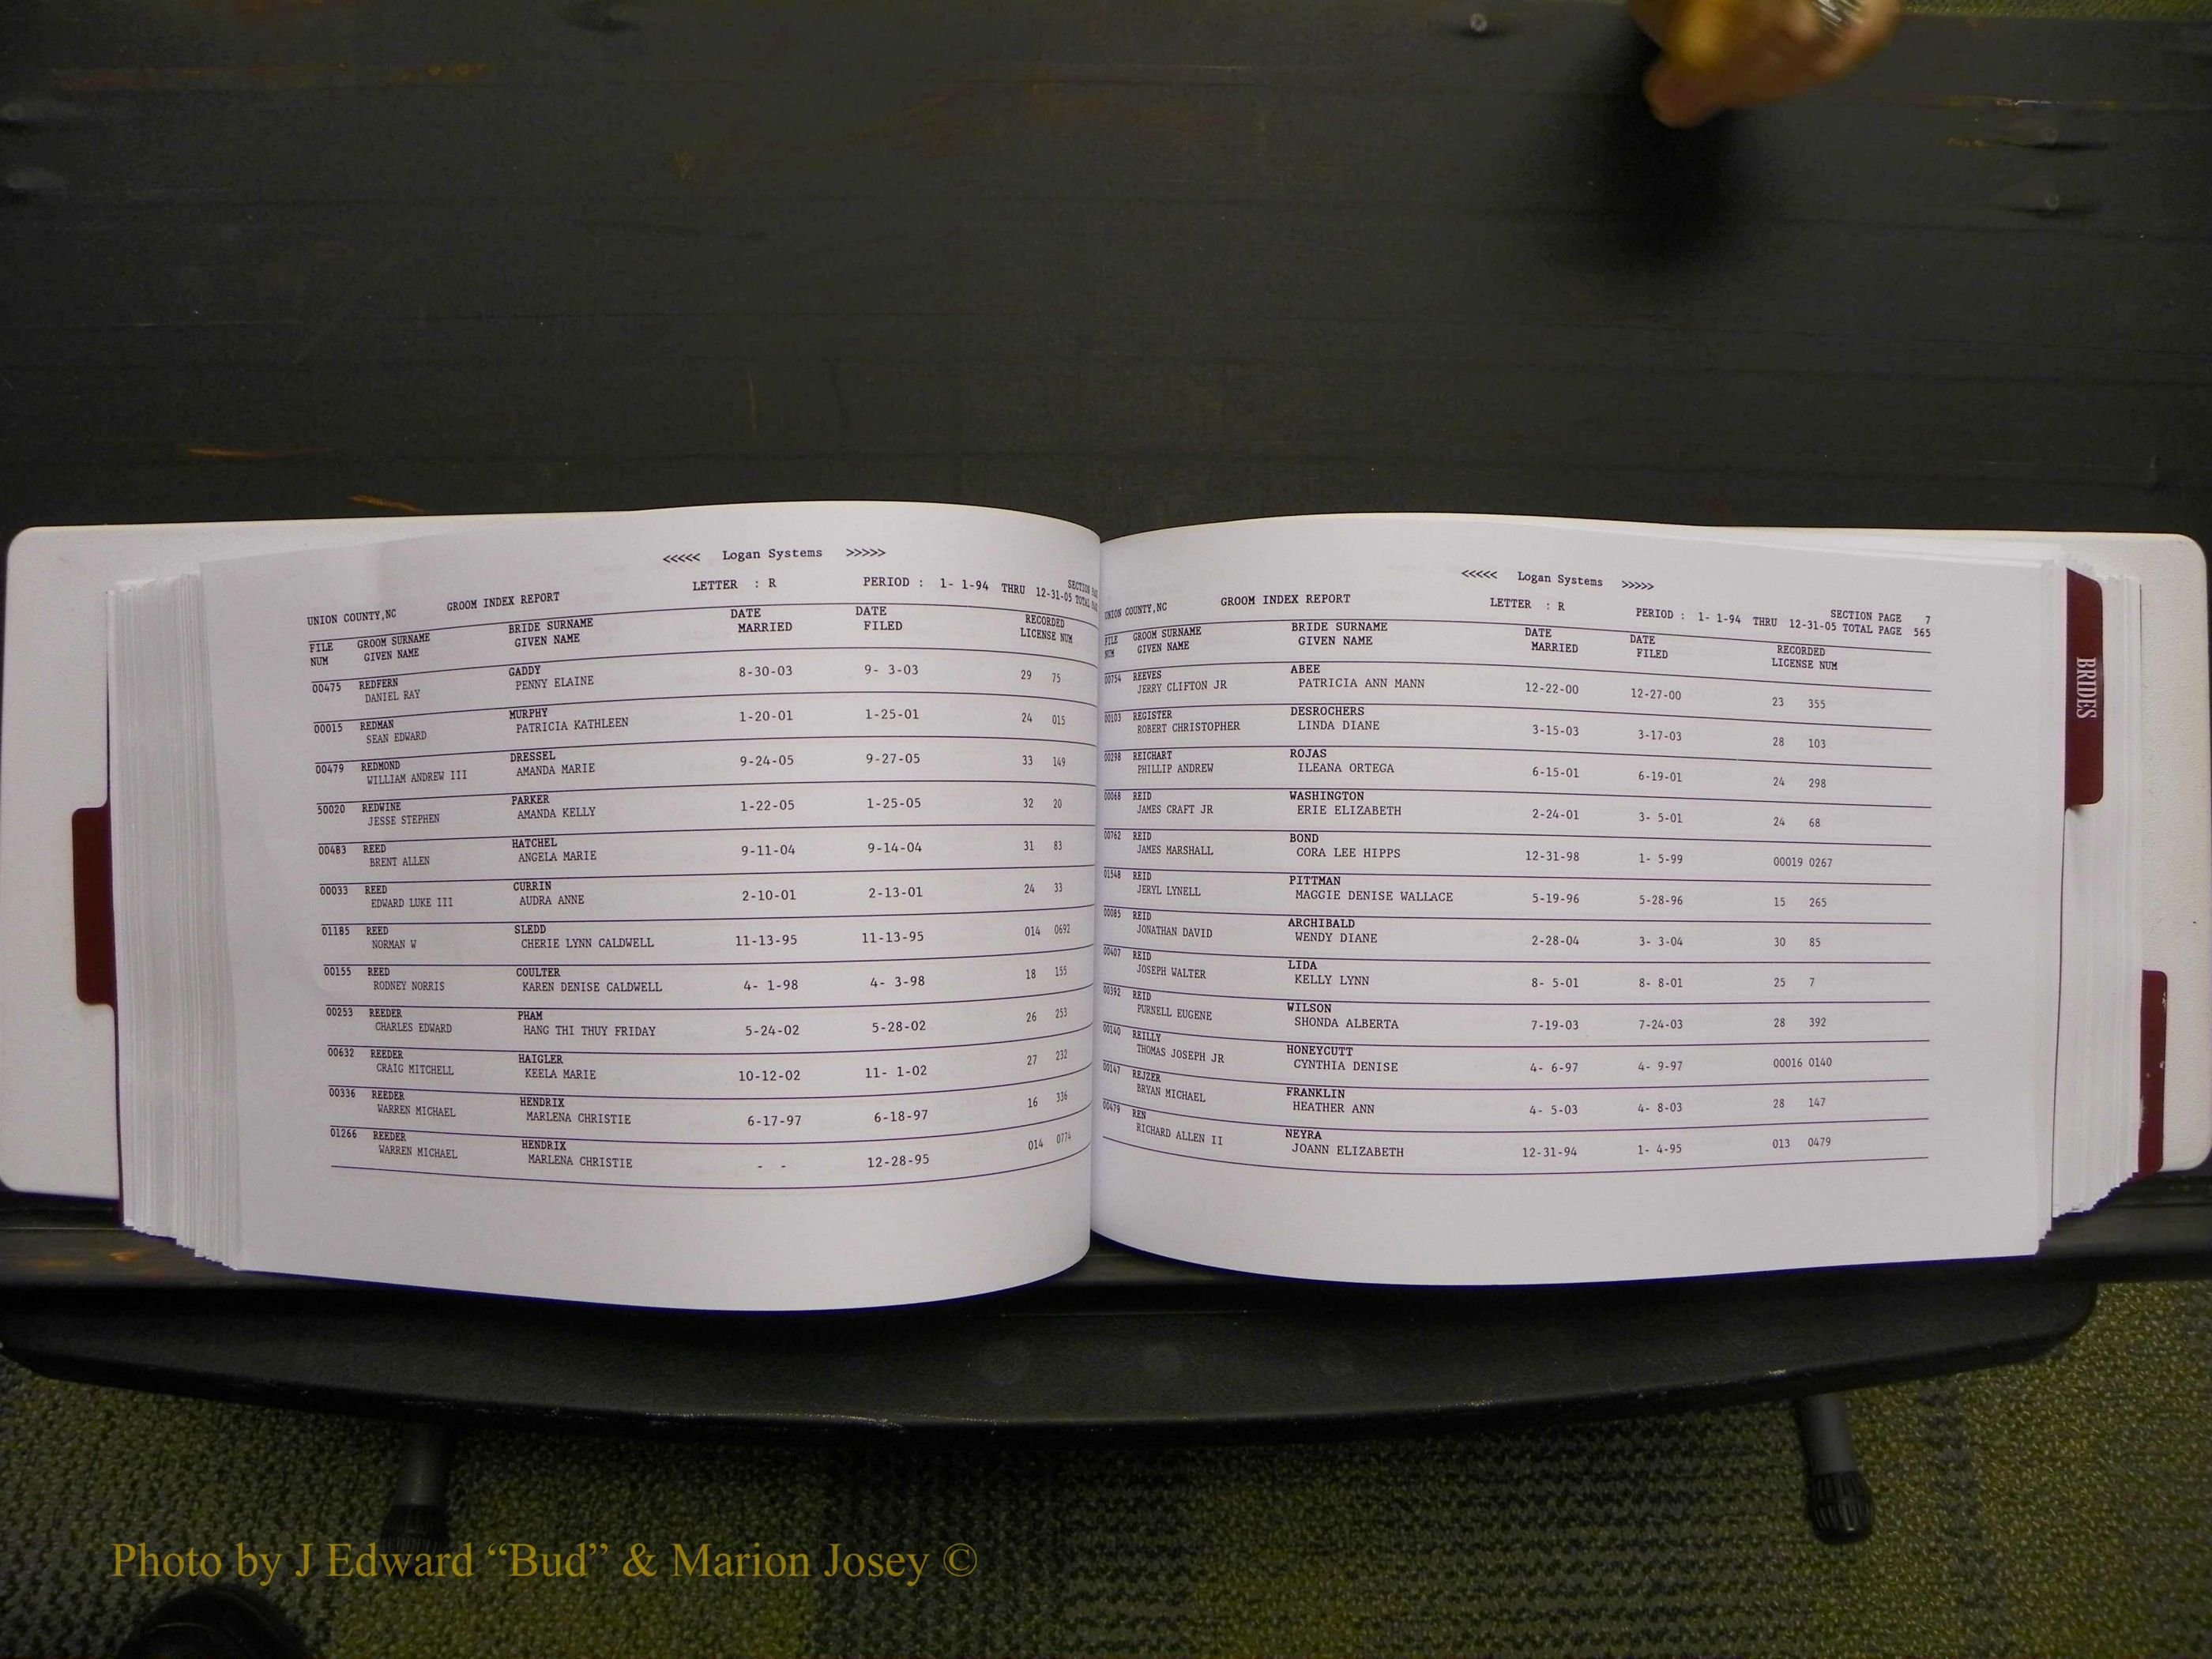 <<<<< Logan Systems >>>>>
UNION COUNTY,NC GROOM INDEX REPORT LETTER : R PERIOD : 1- 1-94 THRU 12-31-05 TOTAL
SECTION
FILE GROOM SURNAME BRIDE SURNAME DATE DATE RECORDED
NUM GIVEN NAME GIVEN NAME MARRIED FILED LICENSE NUM
00475 REDFERN GADDY 8-30-03 9- 3-03 29 75
DANIEL RAY PENNY ELAINE
00015 REDMAN MURPHY 1-20-01 1-25-01 24 015
SEAN EDWARD PATRICIA KATHLEEN
00479 REDMOND DRESSEL 9-24-05 9-27-05 33 149
WILLIAM ANDREW III AMANDA MARIE
50020 REDWINE PARKER 1-22-05 1-25-05 32 20
JESSE STEPHEN AMANDA KELLY
00483 REED HATCHEL 9-11-04 9-14-04 31 83
BRENT ALLEN ANGELA MARIE
00033 REED CURRIN 2-10-01 2-13-01 24 33
EDWARD LUKE III AUDRA ANNE
01185 REED SLEDD 11-13-95 11-13-95 014 0692
NORMAN W CHERIE LYNN CALDWELL
00155 REED COULTER 4- 1-98 4- 3-98 18 155
RODNEY NORRIS KAREN DENISE CALDWELL
00253 REEDER PHAM 5-24-02 5-28-02 26 253
CHARLES EDWARD HANG THI THUY FRIDAY
00632 REEDER HAIGLER 10-12-02 11- 1-02 27 232
CRAIG MITCHELL KEELA MARIE
00336 REEDER HENDRIX 6-17-97 6-18-97 16 336
WARREN MICHAEL MARLENA CHRISTIE
01266 REEDER HENDRIX - - 12-28-95 014 0774
WARREN MICHAEL MARLENA CHRISTIE
<<<<< Logan Systems >>>>>
UNION COUNTY,NC GROOM INDEX REPORT LETTER : R SECTION PAGE 7
PERIOD : 1- 1-94 THRU 12-31-05 TOTAL PAGE 565
FILE GROOM SURNAME BRIDE SURNAME DATE DATE RECORDED
NUM GIVEN NAME GIVEN NAME MARRIED FILED LICENSE NUM
00754 REEVES ABEE 12-22-00 12-27-00 23 355
JERRY CLIFTON JR PATRICIA ANN MANN
00103 REGISTER DESROCHERS 3-15-03 3-17-03 28 103
ROBERT CHRISTOPHER LINDA DIANE
00298 REICHART ROJAS 6-15-01 6-19-01 24 298
PHILLIP ANDREW ILEANA ORTEGA
00068 REID WASHINGTON 2-24-01 3- 5-01 24 68
JAMES CRAFT JR ERIE ELIZABETH
00762 REID BOND 12-31-98 1- 5-99 00019 0267
JAMES MARSHALL CORA LEE HIPPS
01548 REID PITTMAN 5-19-96 5-28-96 15 265
JERYL LYNELL MAGGIE DENISE WALLACE
00085 REID ARCHIBALD 2-28-04 3- 3-04 30 85
JONATHAN DAVID WENDY DIANE
00407 REID LIDA 8- 5-01 8- 8-01 25 7
JOSEPH WALTER KELLY LYNN
00392 REID WILSON 7-19-03 7-24-03 28 392
PURNELL EUGENE SHONDA ALBERTA
00140 REILLY HONEYCUTT 4- 6-97 4- 9-97 00016 0140
THOMAS JOSEPH JR CYNTHIA DENISE
00147 REJZER FRANKLIN 4- 5-03 4- 8-03 28 147
BRYAN MICHAEL HEATHER ANN
00479 REN NEYRA 12-31-94 1- 4-95 013 0479
RICHARD ALLEN II JOANN ELIZABETH
BRIDES
Photo by J Edward “Bud” & Marion Josey ©